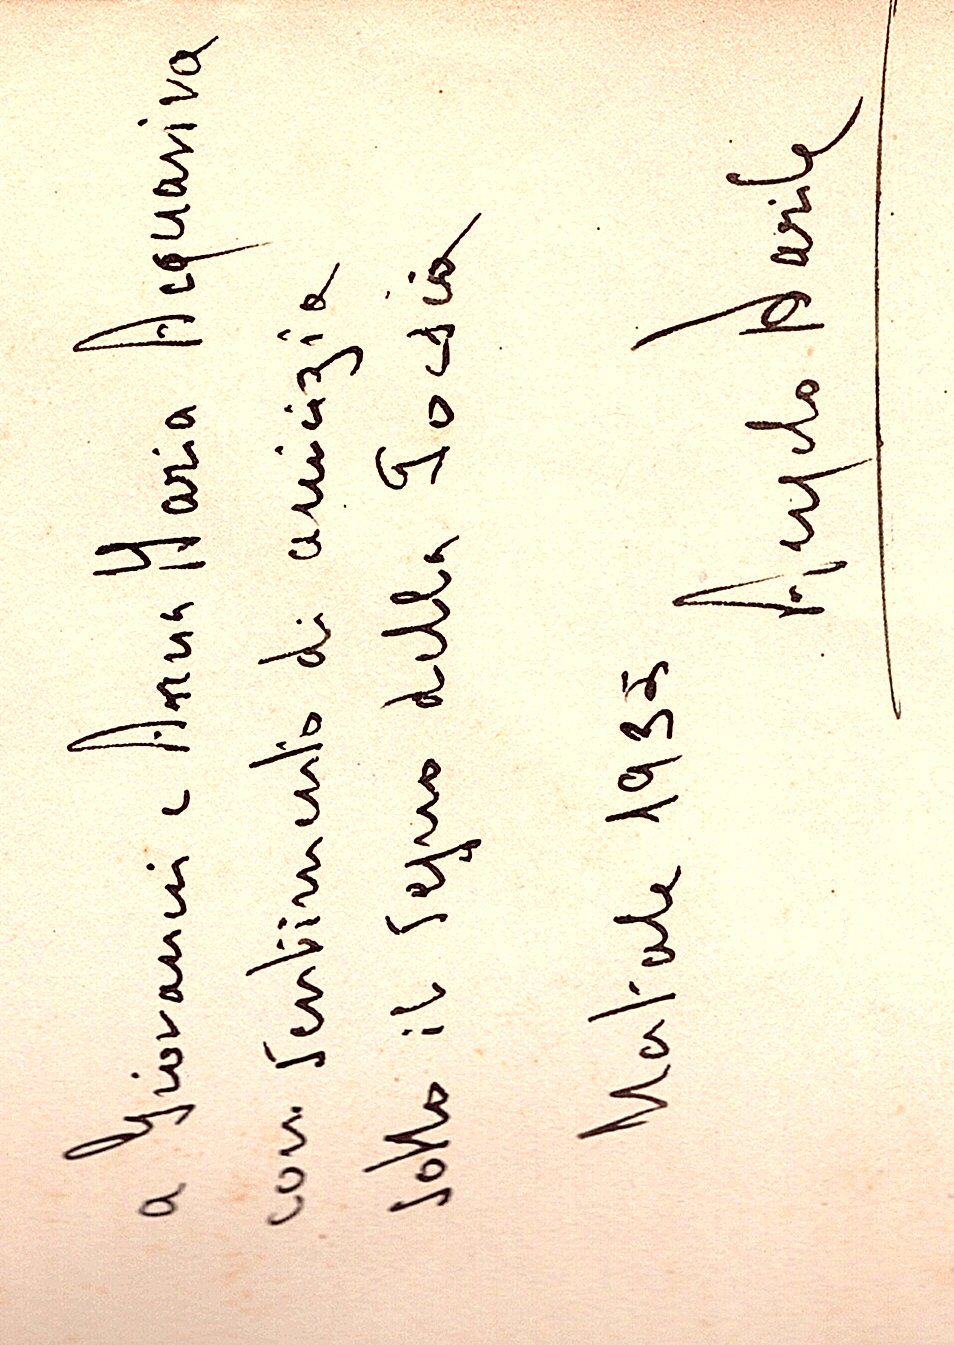 a Giovanni e Anna Maria Acquaviva
con sentimento di amicizia
sotto il segno della Poesia
Natale
Angelo Barile